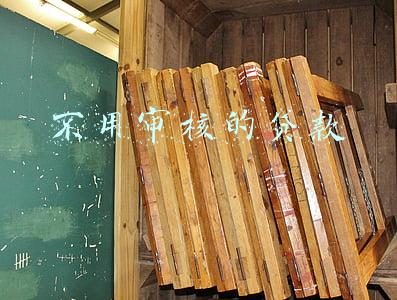 不用审核的贷款